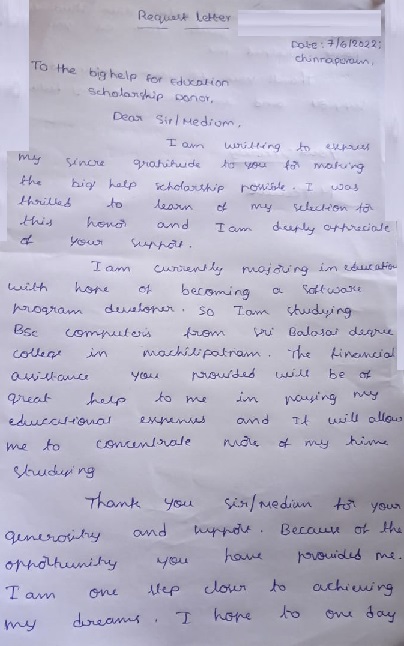 Request Letter
Date: 7/6/2022,
chinnapuram,
To the big help for Education
Scholarship Donor,
Dear Sir/Medium,
I am writting to express
my sincre gratitude to you for making
the big help scholarship possible. I was
thrilled to learn of my selection for
this honor and I am deeply appreciate
of your support.
I am currently majoring in education
with hope of becoming a software
program developer. so I am studying
Bsc computers from Sri Balasai degree
college in machilipatnam. The financial
assistance you provided will be of
great help to me in paying my
educational expenses and It will allow
me to concentrate more of my time
studying
Thank you sir/medium for your
generosity and support. Because of the
opporthunity you have provided me.
I am one step closer to achieving
my dreams. I hope to one day